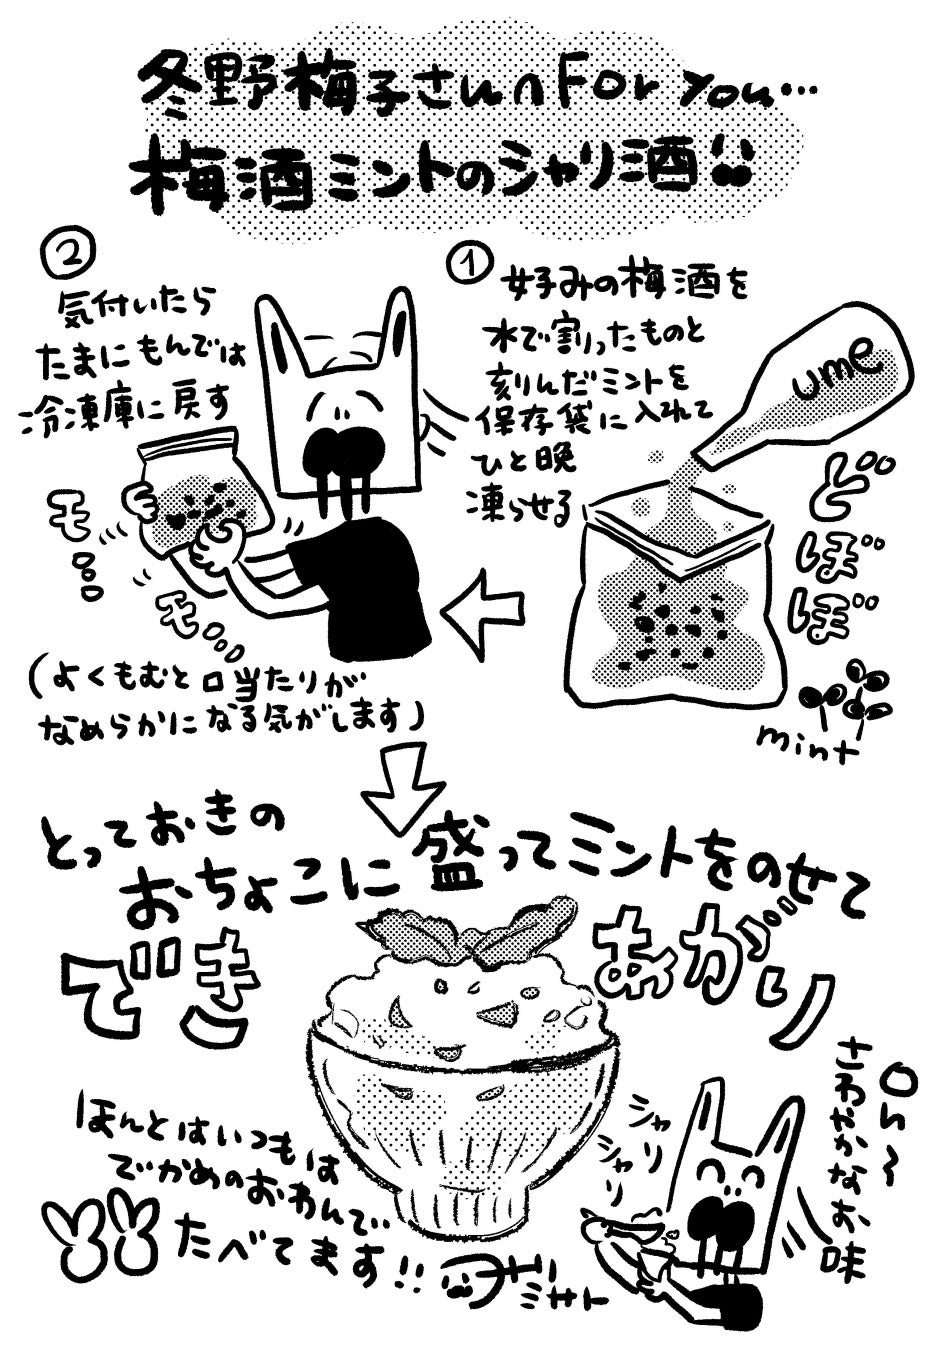 冬野梅子さんへ For you…
梅酒ミントのシャリ酒
①
好みの梅酒を
水で割ったものと
刻んだミントを
保存袋に入れて
ひと晩
凍らせる
ume
どぼぼ
mint
②
気付いたら
たまにもんでは
冷凍庫に戻す
モミ
モミ
(よくもむと口当たりが
なめらかになる気がします)
とっておきの
おちょこに盛ってミントをのせて
できあがり
シャリ
シャリ
さわやかなお味
ほんとはいつもは
でかめのおわんで
たべてます!!
ミサト